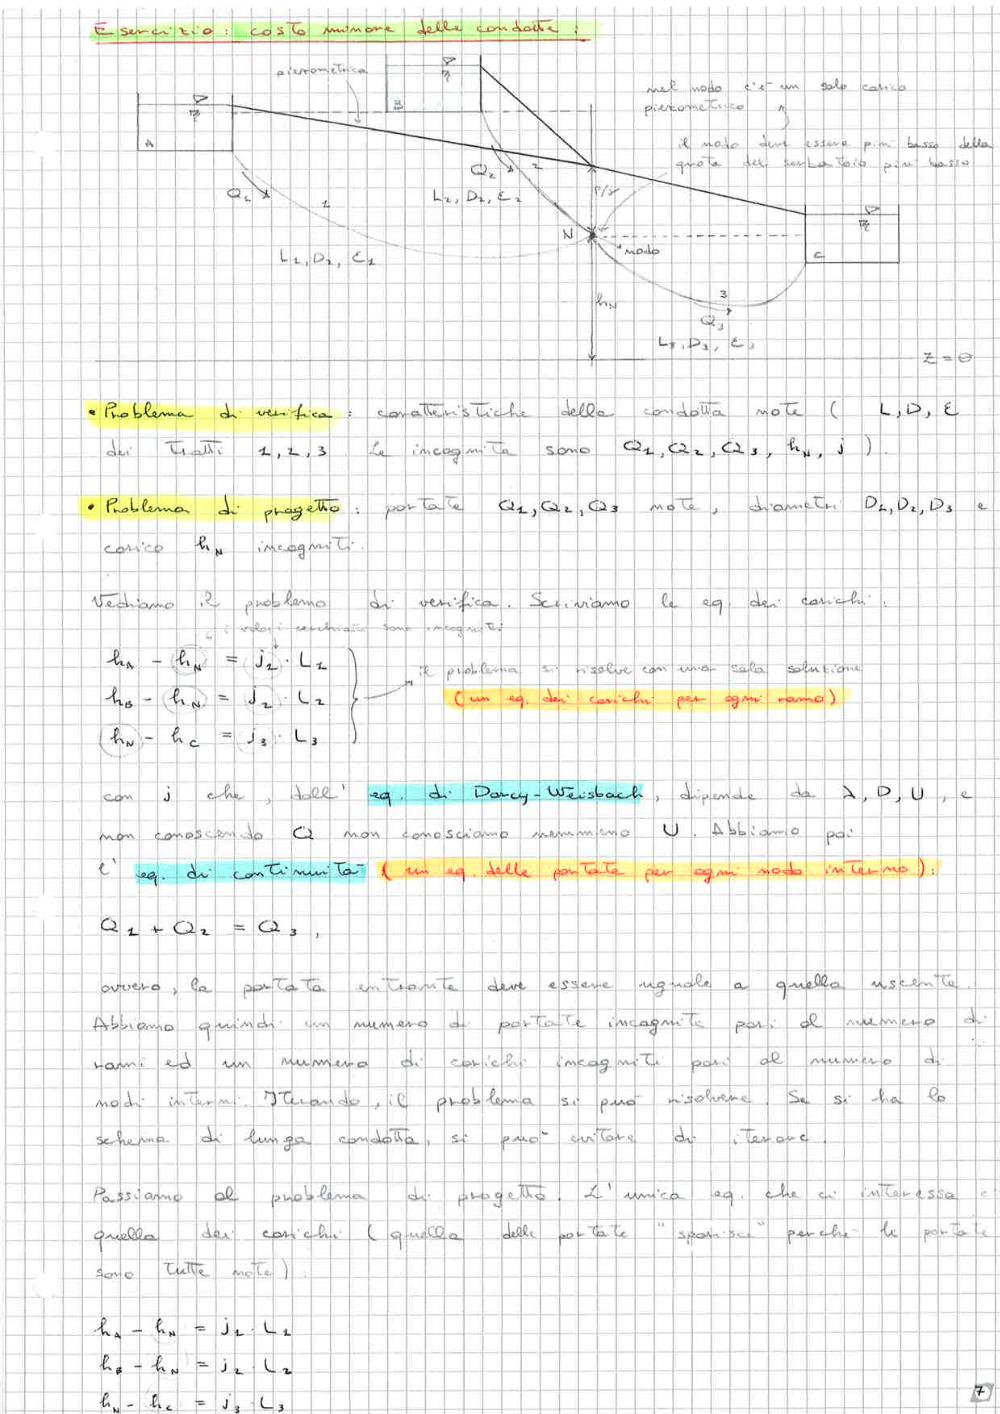 Esercizio: costo minore delle condotte:
piezometrica
nel nodo c'è un solo carico
piezometrico
il nodo deve essere più basso della
quota del serbatoio più basso
A
B
C
Q1
1
L1, D1, ε1
Q2
2
L2, D2, ε2
P/γ
N
nodo
hN
3
Q3
L3, D3, ε3
z = 0
• Problema di verifica: caratteristiche della condotta note ( L, D, ε
dei tratti 1, 2, 3 Le incognite sono Q1, Q2, Q3, hN, j ).
• Problema di progetto: portate Q1, Q2, Q3 note, diametri D1, D2, D3 e
carico hN incogniti.
Vediamo il problema di verifica. Scriviamo le eq. dei carichi:
i valori cerchiati sono incogniti
hA - hN = j1 · L1
hB - hN = j2 · L2
hN - hC = j3 · L3
il problema si risolve con una sola soluzione
(un eq. dei carichi per ogni ramo)
con j che, dall' eq. di Darcy-Weisbach, dipende da λ, D, U, e
non conoscendo Q non conosciamo nemmeno U. Abbiamo poi
l' eq. di continuità (un eq. delle portate per ogni nodo interno):
Q1 + Q2 = Q3,
ovvero, la portata entrante deve essere uguale a quella uscente.
Abbiamo quindi un numero di portate incognite pari al numero di
rami ed un numero di carichi incogniti pari al numero di
nodi interni. Iterando, il problema si può risolvere. Se si ha lo
schema di lunga condotta, si può evitare di iterare.
Passiamo al problema di progetto. L'unica eq. che ci interessa è
quella dei carichi (quella delle portate "sparisce" perché le portate
sono tutte note):
hA - hN = j1 · L1
hB - hN = j2 · L2
hN - hC = j3 · L3
7